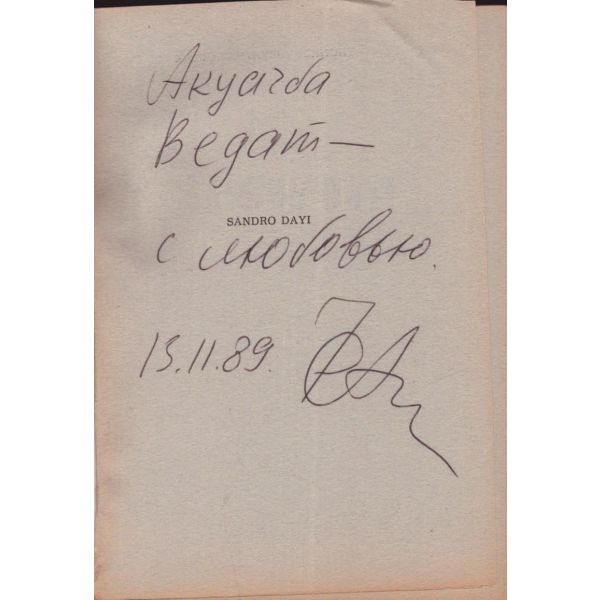 Акуачба
Ведат —
SANDRO DAYI
с любовью.
13.11.89.